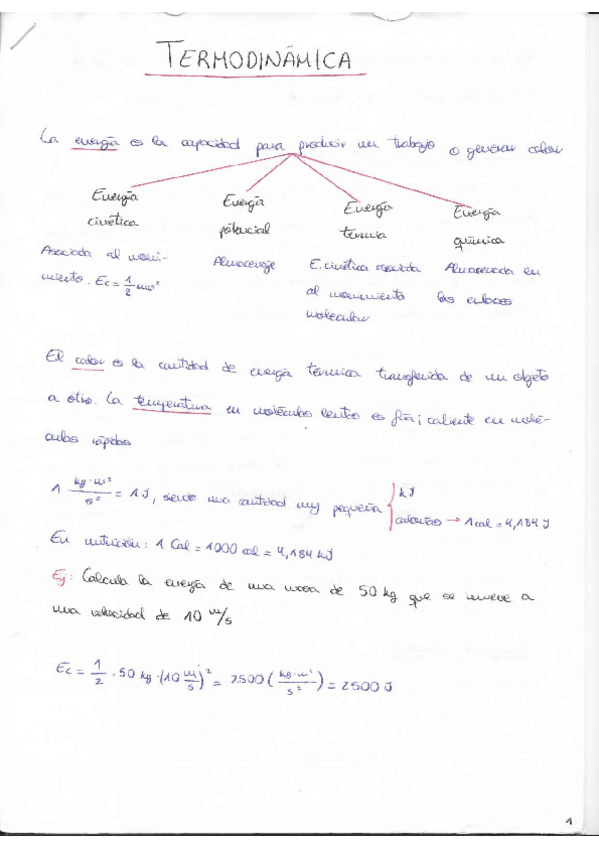 TERMODINÁMICA
La energía es la capacidad para producir un trabajo o generar calor
Energía cinética
Asociada al movi-
miento. Ec = 1/2 mv²
Energía potencial
Almacenaje
Energía térmica
E. cinética asociada
al movimiento
molecular
Energía química
Almacenada en
los enlaces
El calor es la cantidad de energía térmica transferida de un objeto
a otro. La temperatura en moléculas lentas es fría; caliente en molé-
culas rápidas
1 kg·m²/s² = 1 J, siendo una cantidad muy pequeña
kJ
calorías → 1 cal = 4,184 J
En nutrición: 1 Cal = 1000 cal = 4,184 kJ
Ej: Calcula la energía de una masa de 50 kg que se mueve a
una velocidad de 10 m/s
Ec = 1/2 · 50 kg · (10 m/s)² = 2500 (kg·m²/s²) = 2500 J
1